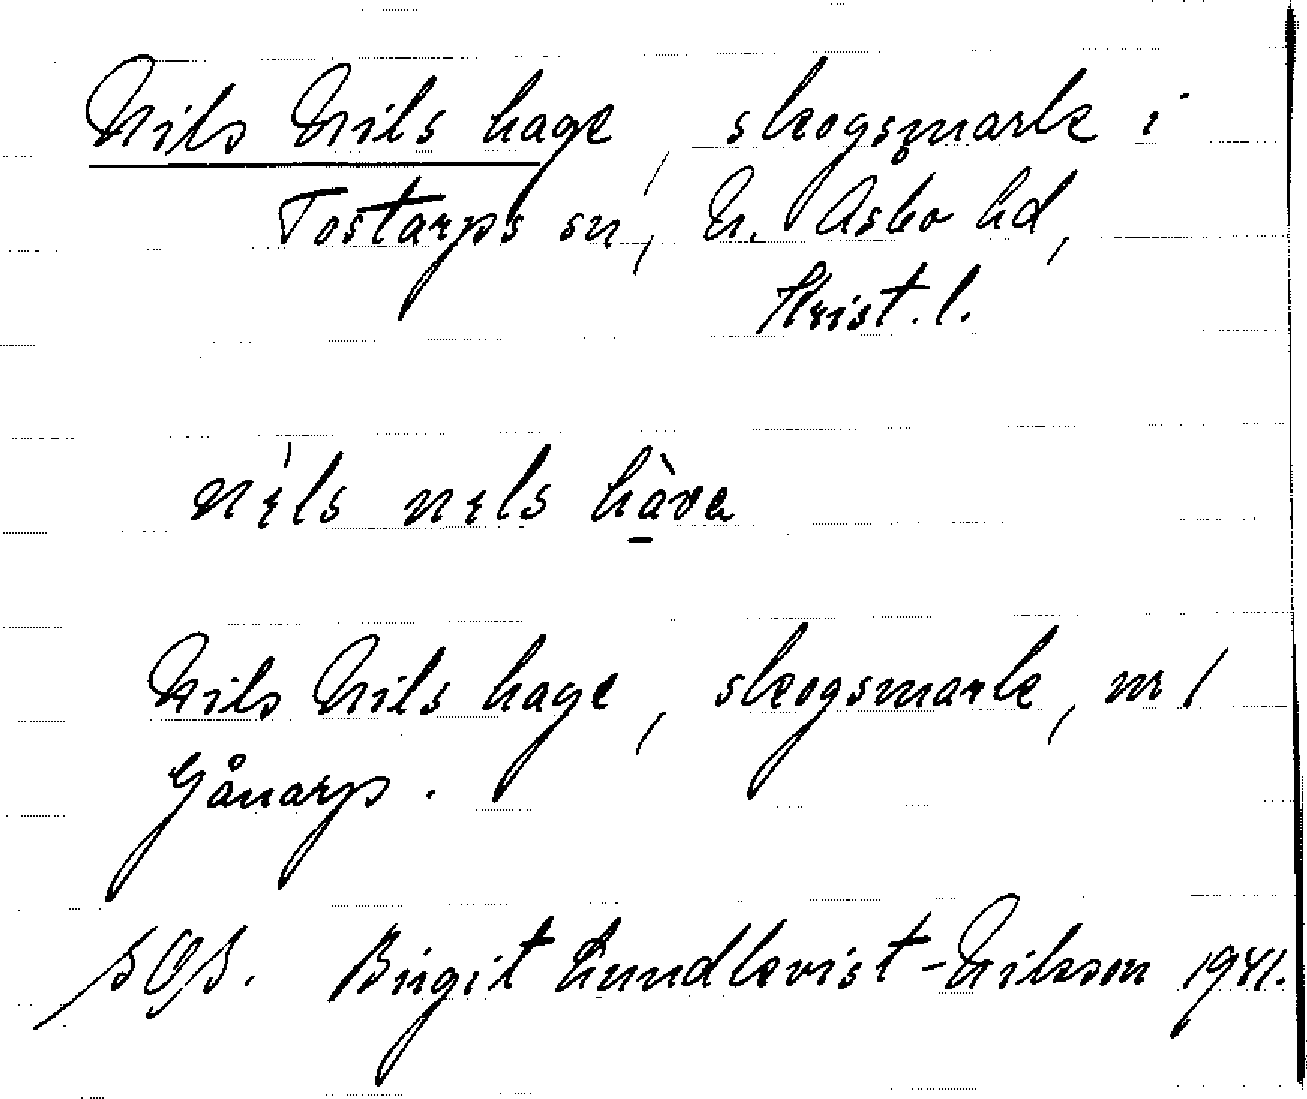 Nils Nils hage, skogsmark i
Tostarps sn, N. Åsbo hd,
Krist. l.
nils nils hàva
Nils Nils hage, skogsmark, nr 1
Gånarp.
SOS. Birgit Lundkvist-Nilsson 1941.